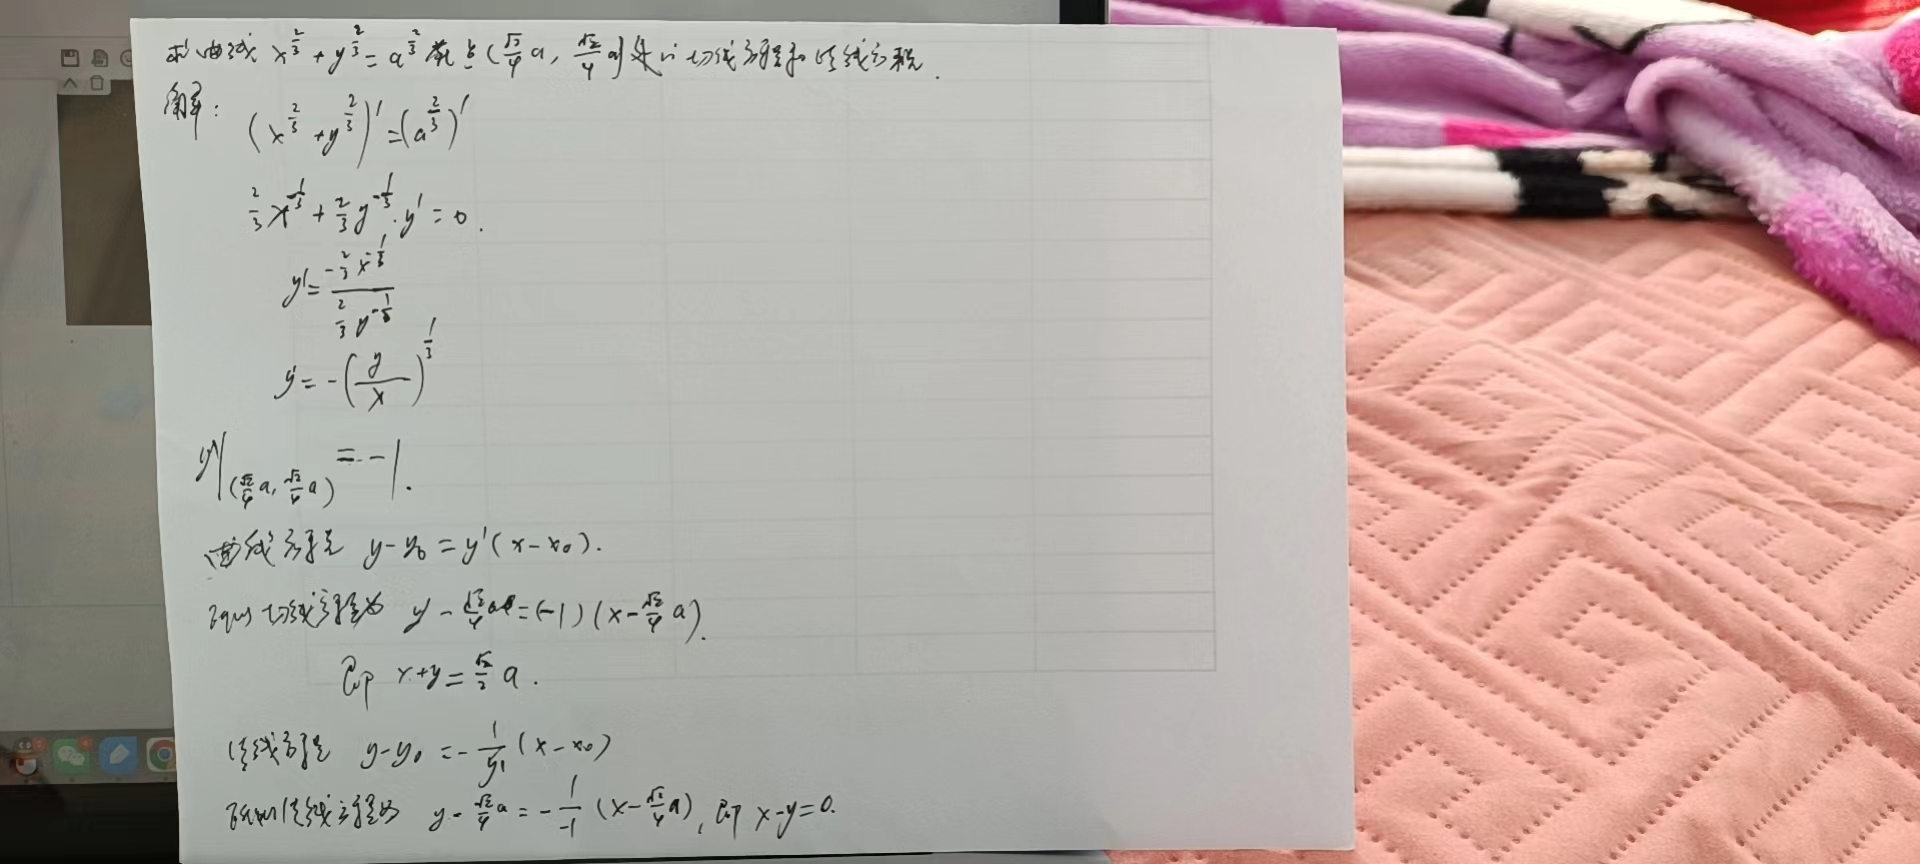 求曲线 x^{2/3} + y^{2/3} = a^{2/3} 在点 (√2/4 a, √2/4 a) 处的切线方程和法线方程.
解:
(x^{2/3} + y^{2/3})' = (a^{2/3})'
2/3 x^{-1/3} + 2/3 y^{-1/3} · y' = 0.
y' = (-2/3 x^{-1/3}) / (2/3 y^{-1/3})
y' = -(y/x)^{1/3}
y'|(√2/4 a, √2/4 a) = -1.
曲线方程 y - y₀ = y'(x - x₀).
切线方程为 y - √2/4 a = (-1)(x - √2/4 a).
即 x + y = √2/2 a.
法线方程 y - y₀ = -1/y' (x - x₀)
法线方程为 y - √2/4 a = -1/-1 (x - √2/4 a), 即 x - y = 0.